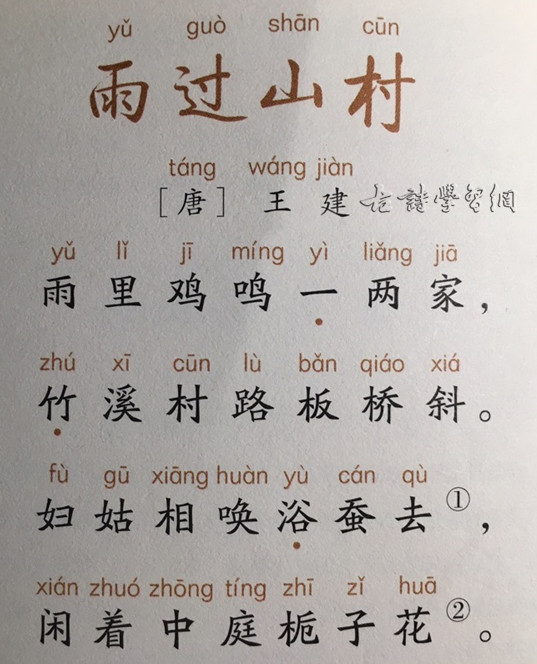 yǔ guò shān cūn
雨过山村
táng wáng jiàn
［唐］ 王 建 古詩學習網
yǔ lǐ jī míng yì liǎng jiā
雨里鸡鸣一两家，
zhú xī cūn lù bǎn qiáo xiá
竹溪村路板桥斜。
fù gū xiāng huàn yù cán qù
妇姑相唤浴蚕去①，
xián zhuó zhōng tíng zhī zǐ huā
闲着中庭栀子花②。